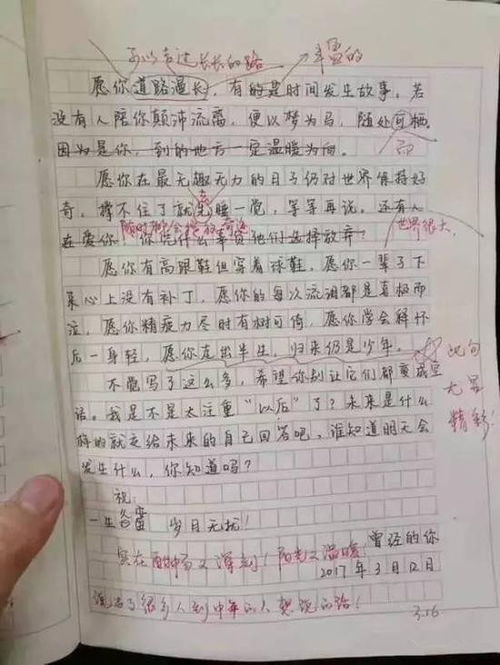 可以走过长长的路 丰富的
愿你道路漫长，有的是时间发生故事。若
没有人陪你颠沛流离，便以梦为马，随处可栖。
因为是你，到的地方一定温暖为向。
愿你在最无趣无力的日子仍对世界保持好
奇。撑不住了就先睡一觉，等等再说。还有人
在爱你，你凭什么事负他们选择放弃？
世界很大
愿你有高跟鞋但穿着球鞋，愿你一辈子下
来心上没有补丁，愿你的每次流泪都是喜极而
泣，愿你精疲力尽时有树可倚，愿你学会释怀
后一身轻，愿你走出半生，归来仍是少年。
此句
尤显
精彩
不觉写了这么多，希望你别让它们都变成空
话。我是不是太注重“以后”了？未来是什么
样的就交给未来的自己回答吧，谁知道明天会
发生什么，你知道吗？
祝：
一生备蕾 岁月无扰！
实在酣畅又深刻！阳光又温暖
曾经的你
2017年3月12日
说出了很多人到中年的人想说的话！
3.16